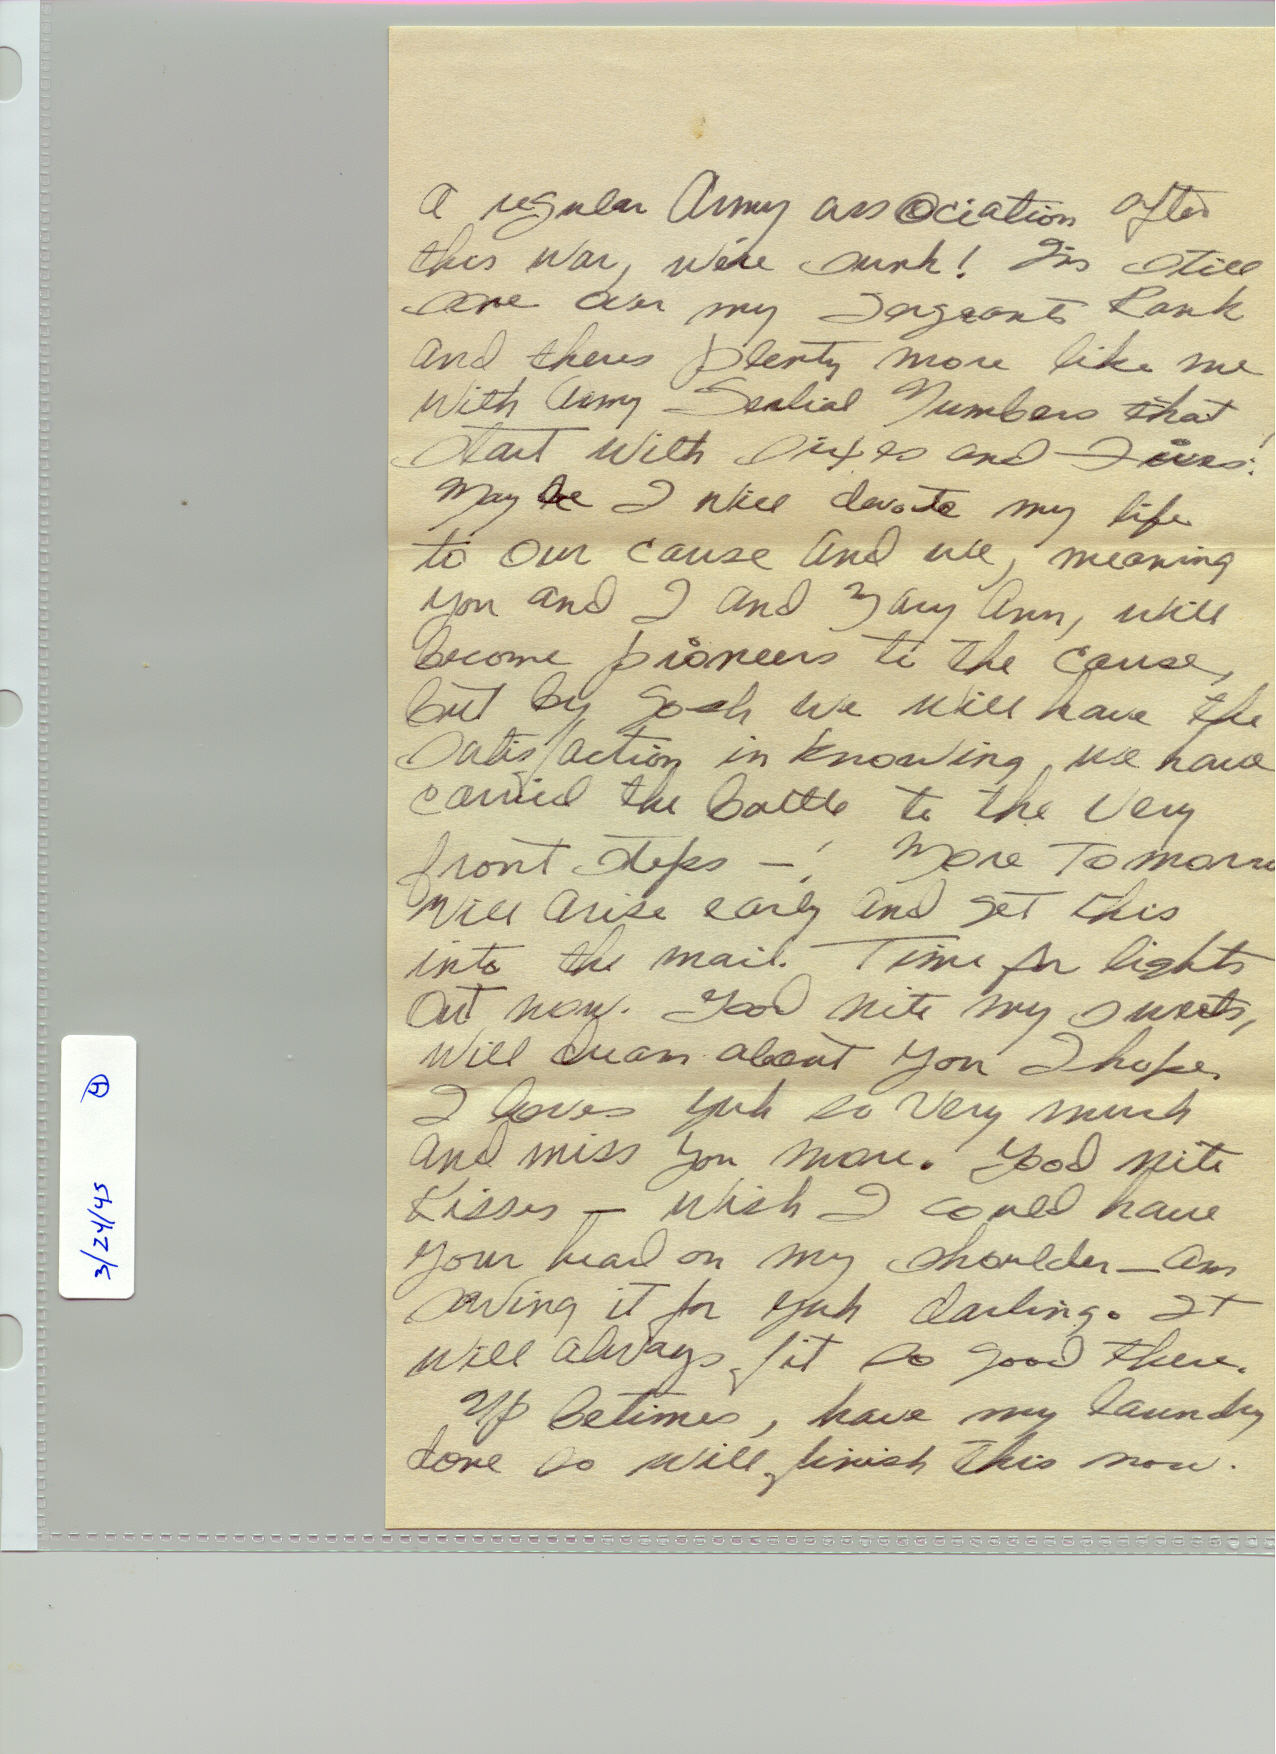 a regular Army association after
this war, we're sunk! I'm still
sore over my Sergeants Rank
and theres plenty more like me
with Army Serlial Numbers that
start with sixes and Fives!
May be I will devote my life
to our cause and we, meaning
you and I and Mary Ann, will
become pioneers to the cause,
but by gosh we will have the
satisfaction in knowing we have
carried the battle to the very
front steps —! More Tomorro
Will arise early and get this
into the mail. Time for lights
out now. Good nite my sweets,
will dream about you I hope.
I loves yuh so very much
and miss you more. Good nite
Kisses — wish I could have
your head on my shoulder — am
saving it for yuh darling. It
will always fit so good there.
Up betimes, have my laundry
done so will finish this now.
3/24/45 ④